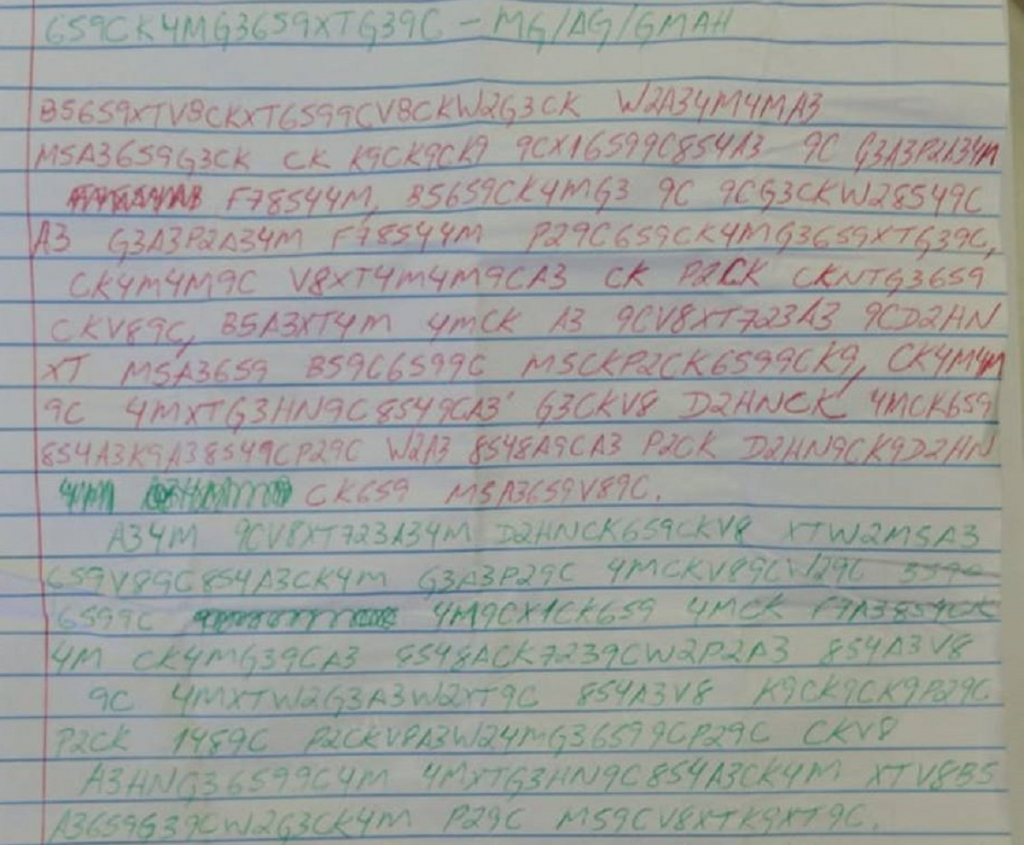 659CK4MG3659XTG39C - MG/AG/GMAH
B5659XTV89CKXT6599CV8CKW2G3CK W2A34M4MA3
M5A3659G3CK CK K9CK9CK9 9CX16599C854A3 9C G3A3P2A34M
F78544M, B5659CK4MG3 9C 9CG3CKW28549C
A3 G3A3P2A34M F78544M P29C659CK4MG3659XTG39C,
CK4M4M9C V8XT4M4M9CA3 CK P2CK CKNTG3659
CKV89C, B5A3XT4M 4MCK A3 9CV8XT723A3 9CD2HN
XT M5A3659 B59C6599C M5CKP2CK6599CK9, CK4M4M
9C 4MXTG3HN9C8549CA3 G3CKV8 D2HNCK 4MCK659
854A3K9A38549CP29C W2A3 8548A9CA3 P2CK D2HN9CK9D2HN
CK659 M5A3659V89C.
A34M 9CV8XT723A34M D2HNCK659CKV8 XTW2M5A3
659V89C854A3CK4M G3A3P29C 4MCKV89CW29C
6599C 4M9CX1CK659 4MCK F7A3854CK
4M CK4MG39CA3 8548ACK7239CW2P2A3 854A3V8
9C 4MXTW2G3A3W2XT9C 854A3V8 K9CK9CK9P29C
P2CK 1489C P2CKV8A3W24MG36599CP29C CKV8
A3HNG36599C4M 4MXTG3HN9C854A3CK4M XTV8B5
A3659G39CW2G3CK4M P29C M59CV8XTK9XT9C.